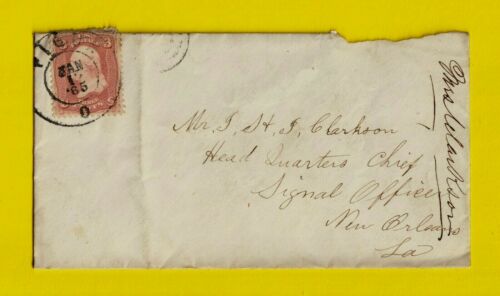 JAN
'65
O
3
Mr. T. H. J. Clarkson
Head Quarters Chief
Signal Officer
New Orleans
La
Mrs Clarkson